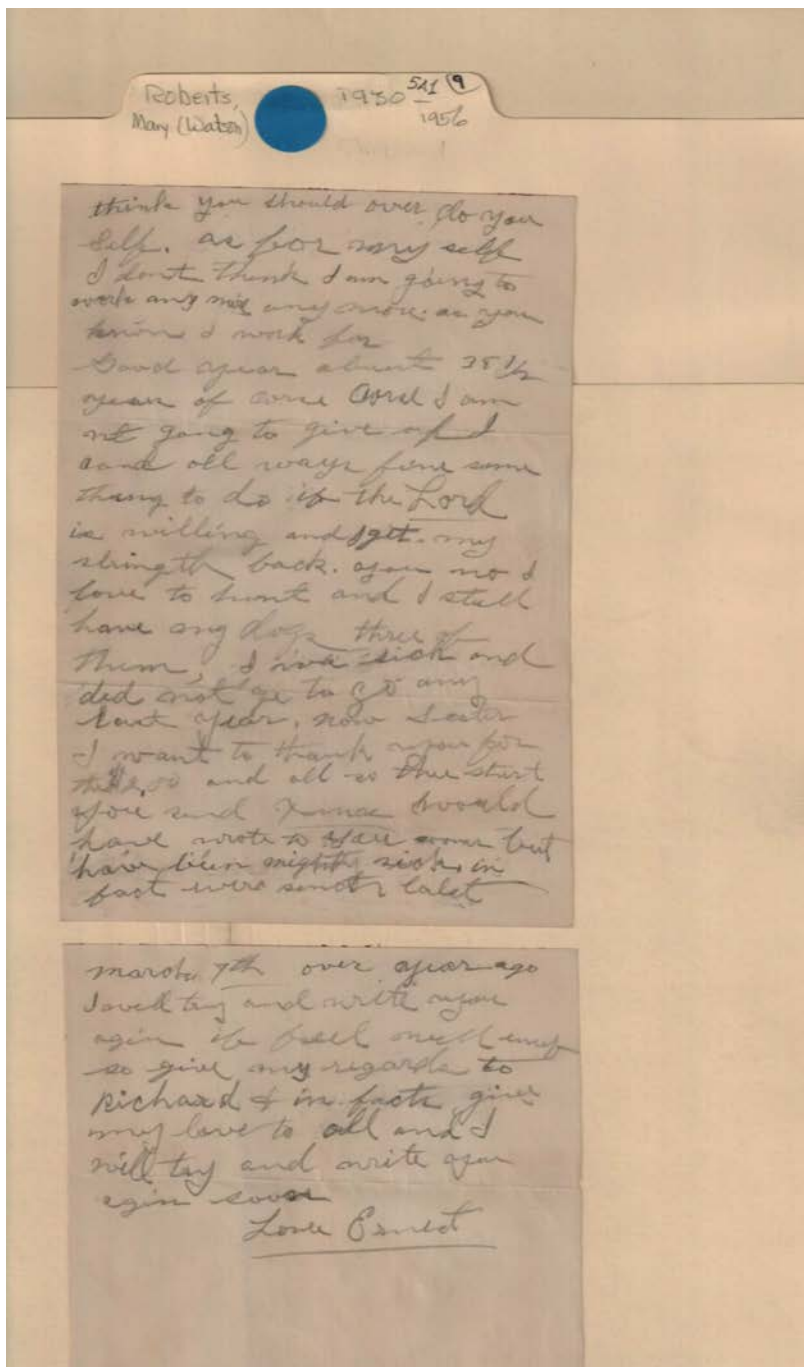 Roberts,
Mary (Watson)
1930 – 1956
521 9
think you should over do you
Self. as for my self
I dont think I am going to
work any more as you
know I work for
Good year about 38 1/2
year of corse I am
not going to give up I
cane all ways fine some
thing to do if the Lord
is willing and get my
strength back. you no I
love to hunt and I still
have my dogs three of
them, I was sick and
did not ge to go any
last year, now Sister
I want to thank you for
the and all so thee shirt
you send Xmas I would
have wrote to you sooner but
have been mighty sick. in
fact were
march 7th over year ago
I will try and write you
agin if feel well
so give my regards to
Richard & in facts give
my love to all and I
will try and write you
agin soon
Love Ernest